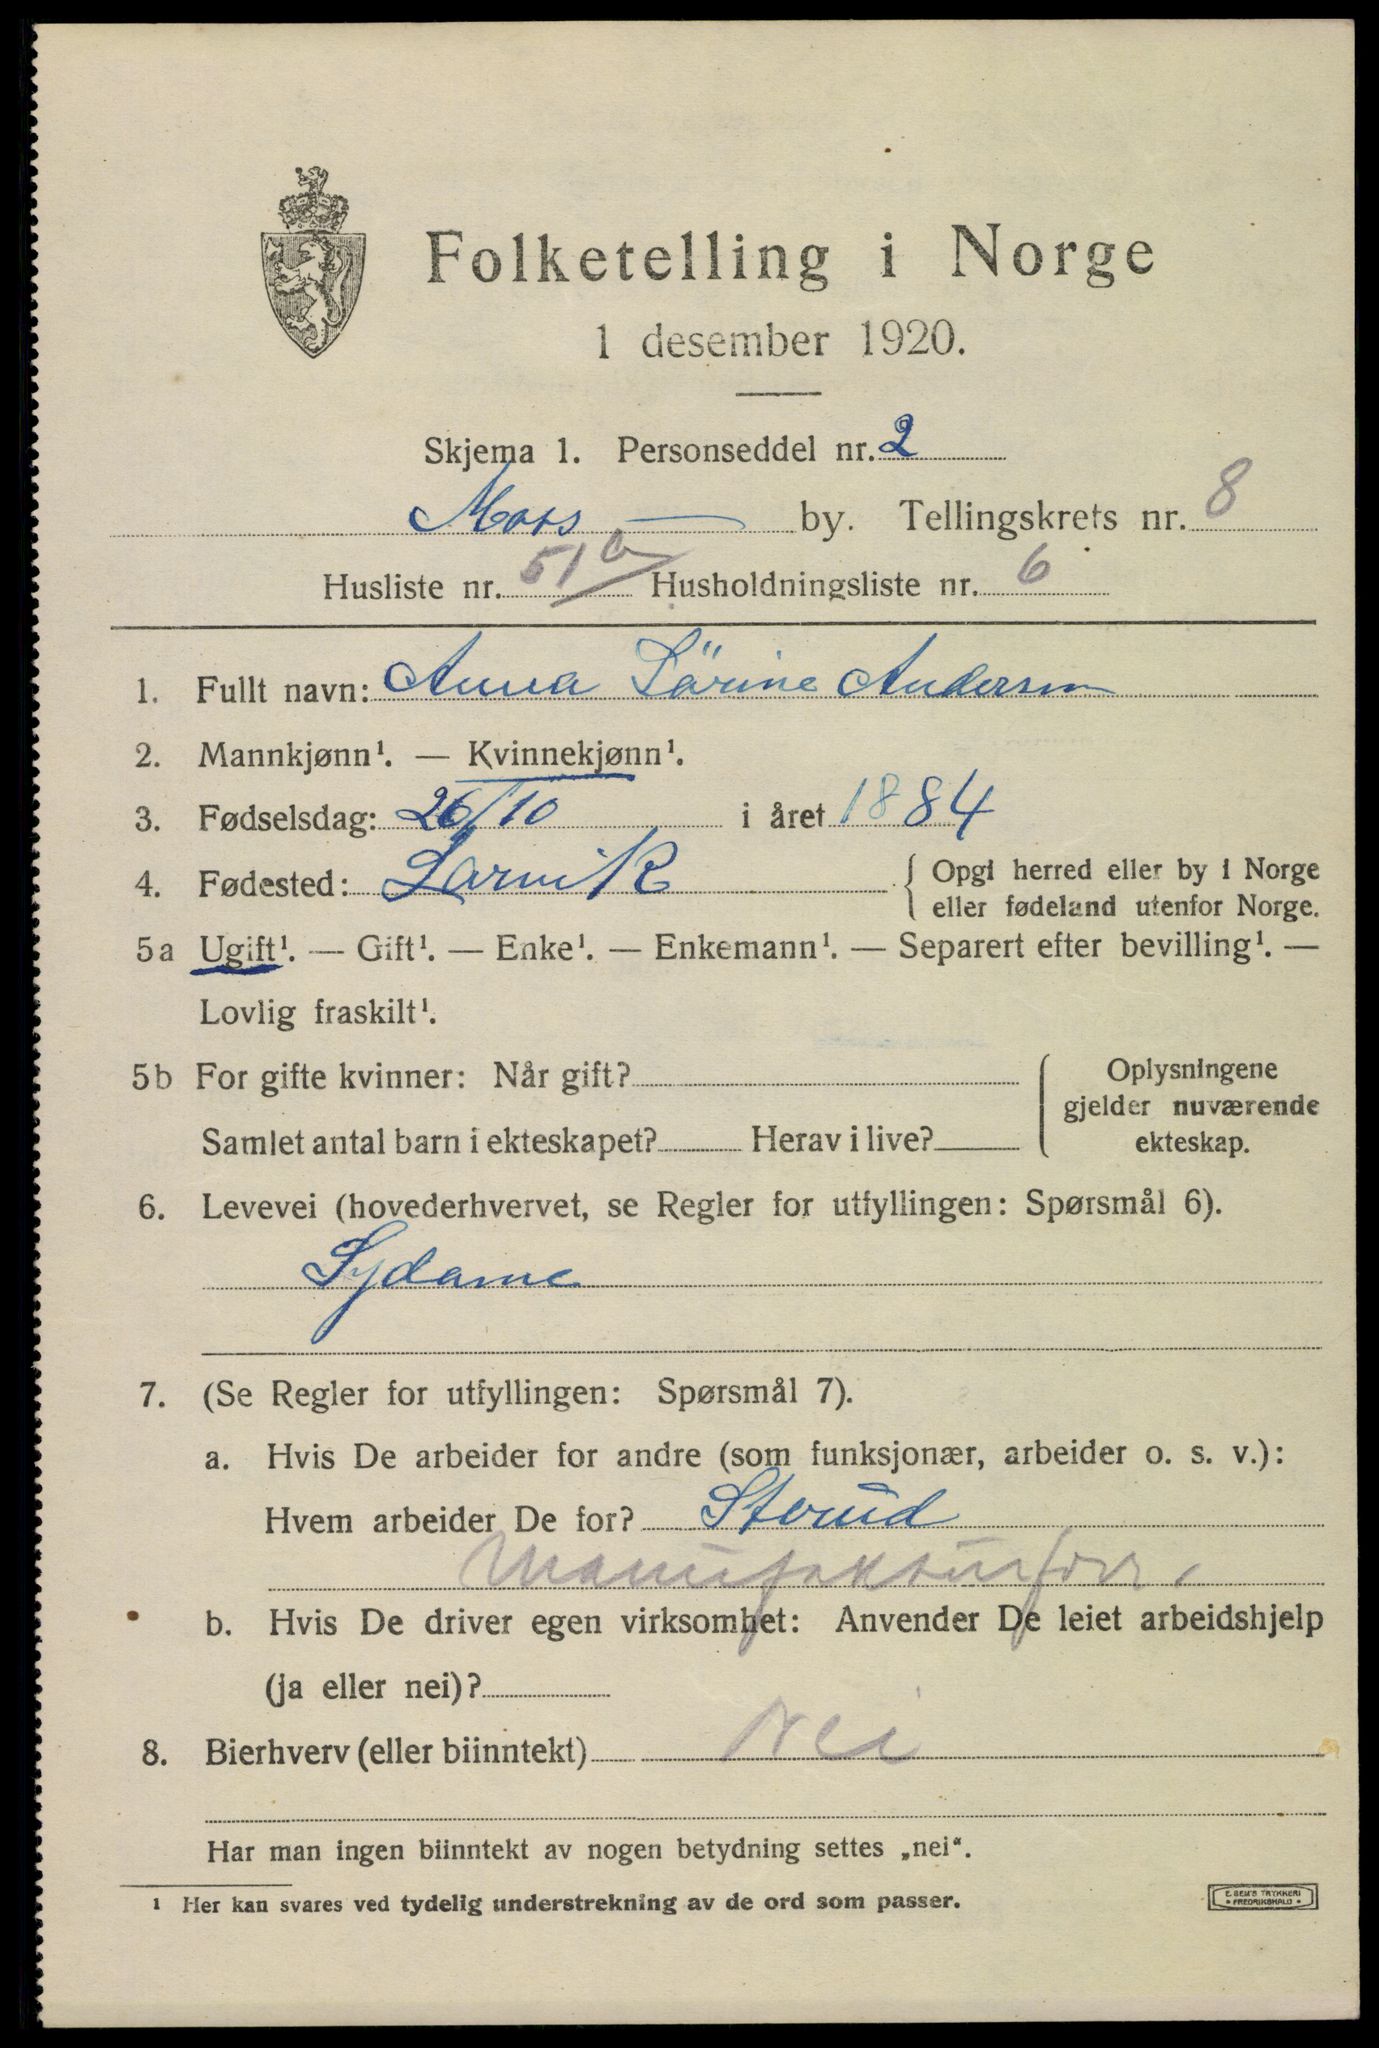 Folketelling i Norge
1 desember 1920.
Skjema 1. Personseddel nr. 2
Moss by. Tellingskrets nr. 8
Husliste nr. 51a Husholdningsliste nr. 6
1. Fullt navn: Anna Lörine Andersen
2. Mannkjønn¹. — Kvinnekjønn¹.
3. Fødselsdag: 26/10 i året 1884
4. Fødested: Larvik { Opgi herred eller by i Norge
eller fødeland utenfor Norge.
5a Ugift¹. — Gift¹. — Enke¹. — Enkemann¹. — Separert efter bevilling¹. —
Lovlig fraskilt¹.
5b For gifte kvinner: Når gift? Oplysningene
gjelder nuværende
Samlet antal barn i ekteskapet? Herav i live? ekteskap.
6. Levevei (hovederhvervet, se Regler for utfyllingen: Spørsmål 6).
Sydame
7. (Se Regler for utfyllingen: Spørsmål 7).
a. Hvis De arbeider for andre (som funksjonær, arbeider o. s. v.):
Hvem arbeider De for? Storud
Manufakturforr.
b. Hvis De driver egen virksomhet: Anvender De leiet arbeidshjelp
(ja eller nei)?
8. Bierhverv (eller biinntekt) Nei
Har man ingen biinntekt av nogen betydning settes „nei“.
¹ Her kan svares ved tydelig understrekning av de ord som passer.
E. SEM'S TRYKKERI
• FREDRIKSHALD •